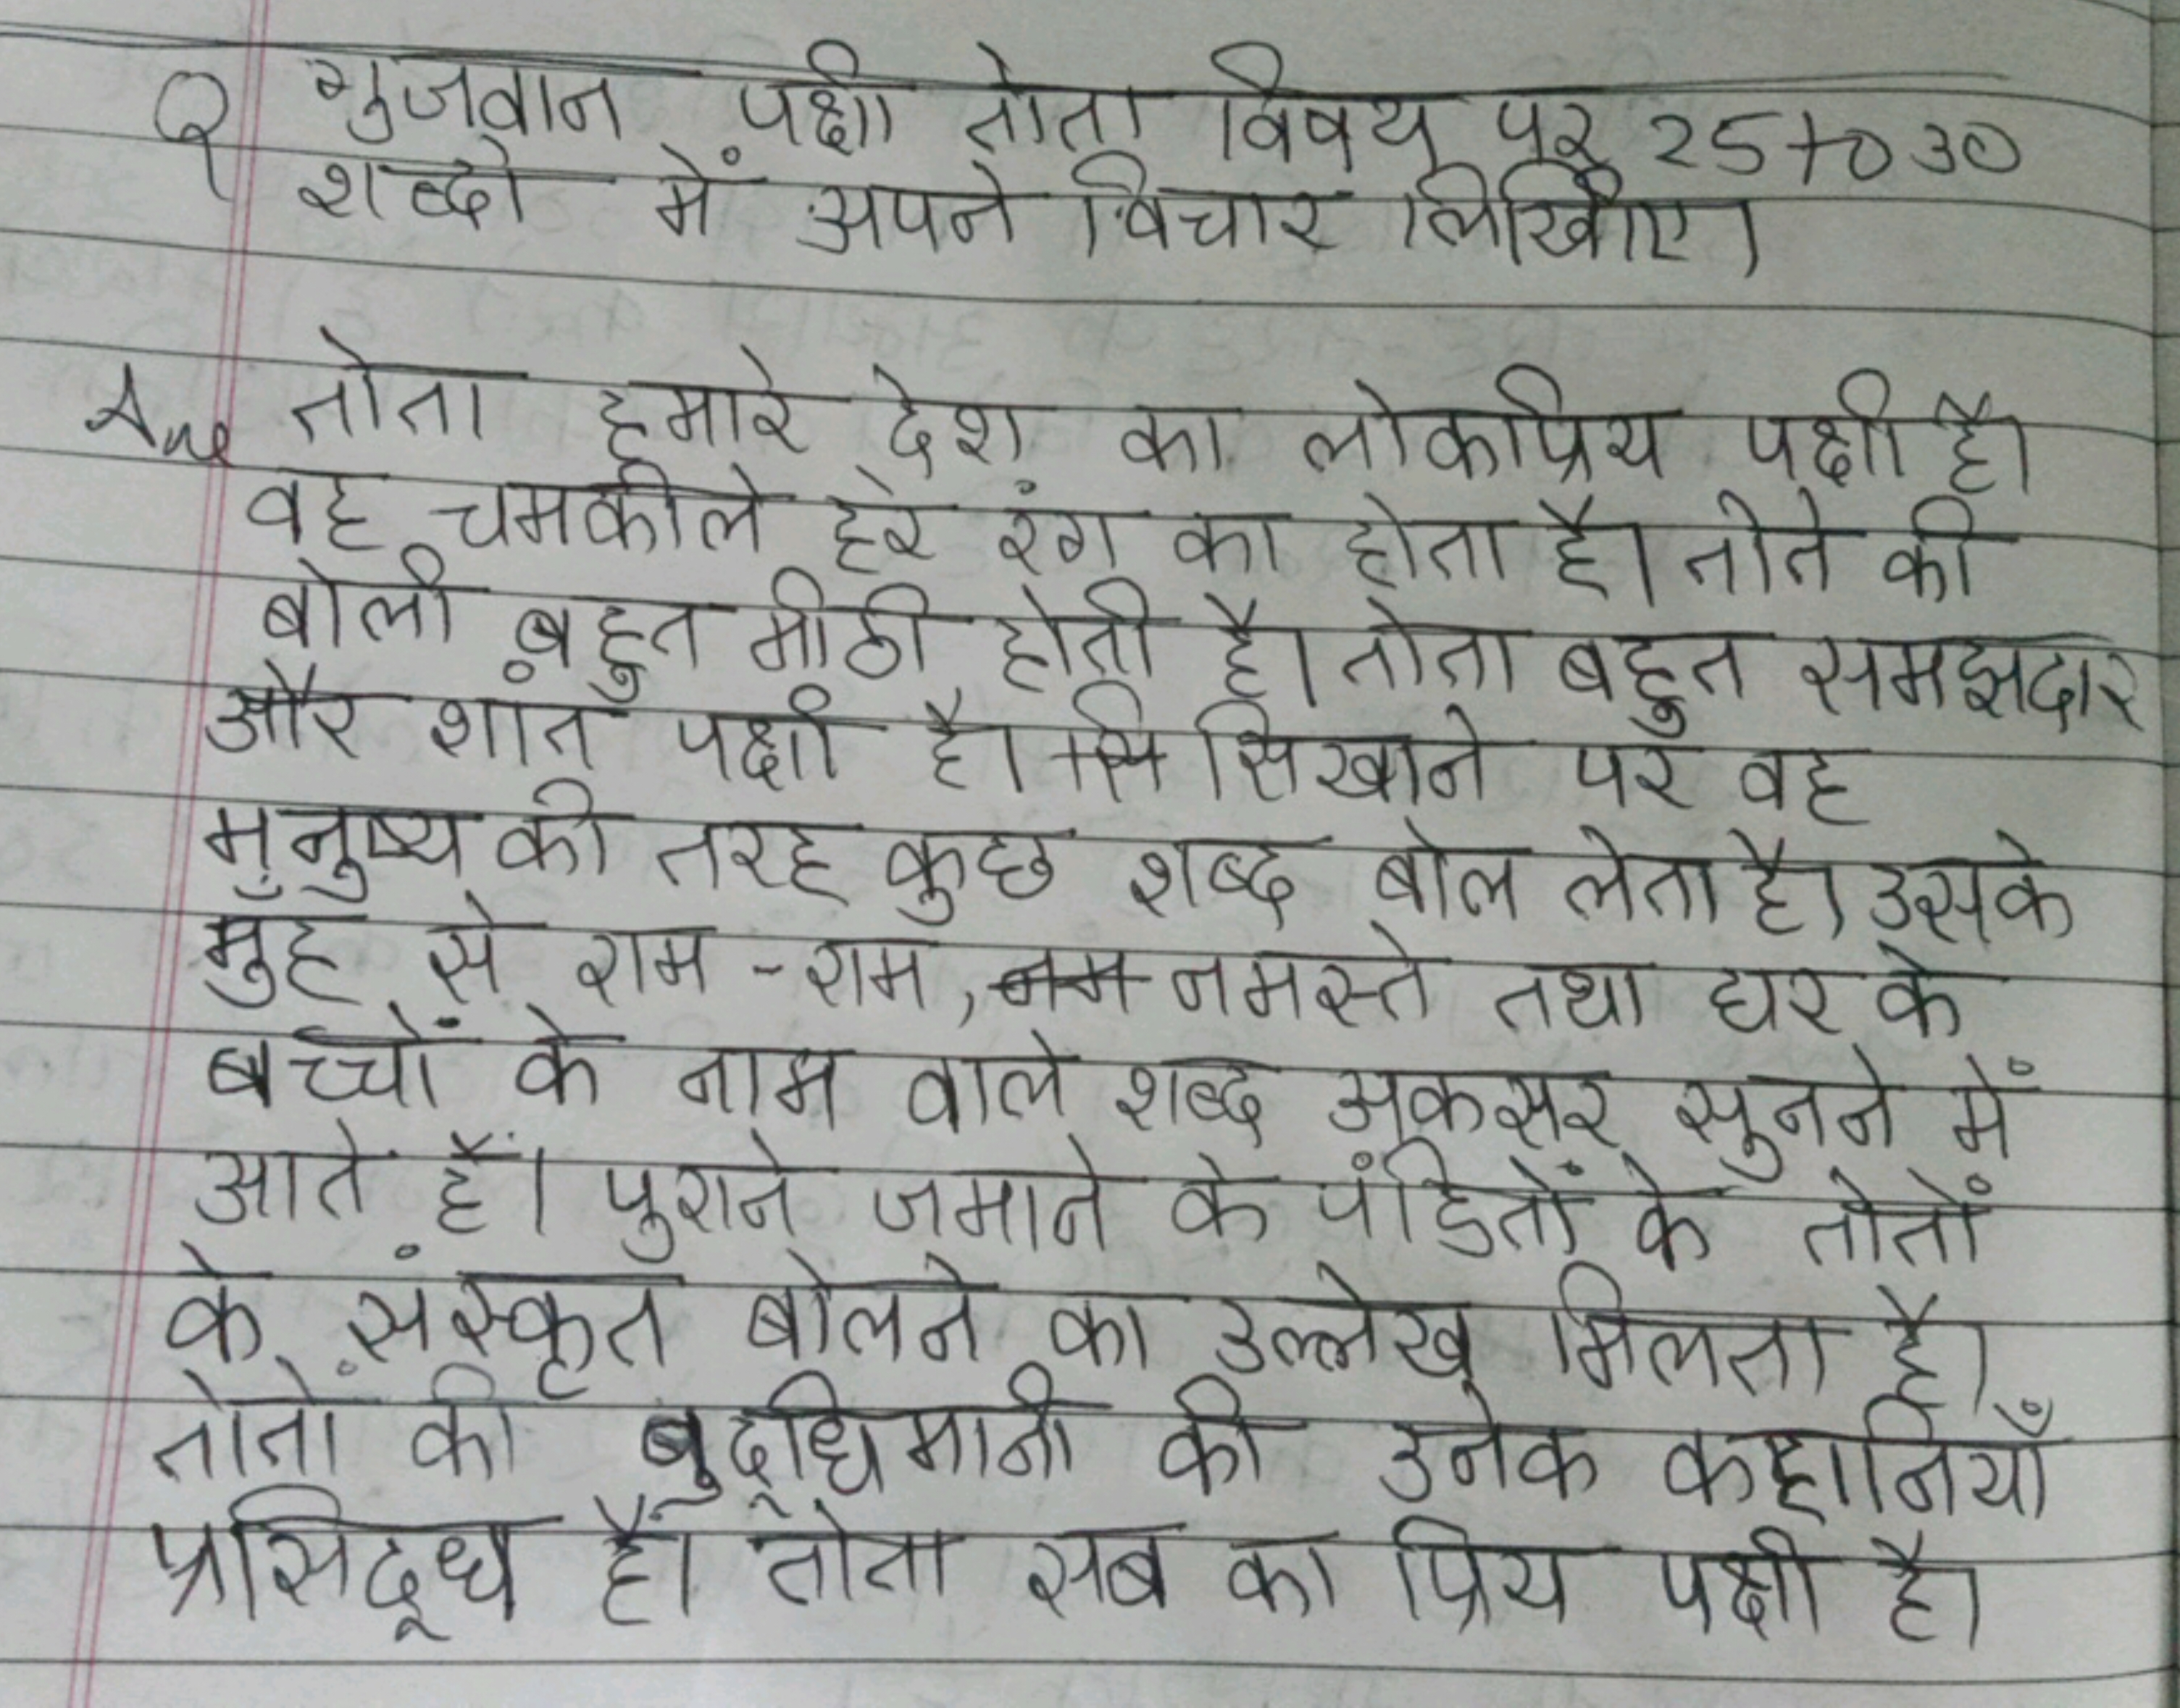 Q गुजवान पक्षी तोता विषय पर 25 to 30
शब्दो में अपने विचार लिखिए।
Ans तोता हमारे देश का लोकप्रिय पक्षी है।
वह चमकीले हरे रंग का होता है। तोते की
बोली बहुत मीठी होती है। तोता बहुत समझदार
और शांत पक्षी है। सि सिखाने पर वह
मनुष्य की तरह कुछ शब्द बोल लेता है। उसके
मुह से राम - राम, नम नमस्ते तथा घर के
बच्चों के नाम वाले शब्द अकसर सुनने में
आते हैं। पुराने जमाने के पंडितों के तोतों
के संस्कृत बोलने का उल्लेख मिलता है।
तोतों की बुद्धिमानी की उनेक कहानियाँ
प्रसिद्ध हैं। तोता सब का प्रिय पक्षी है।